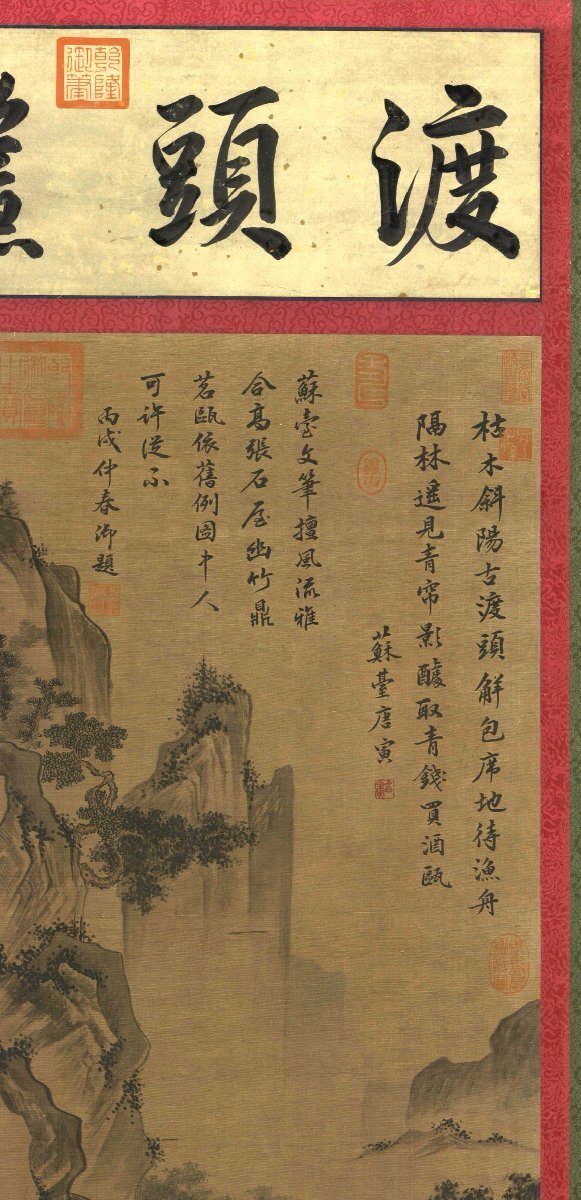 渡頭
乾隆御筆
枯木斜陽古渡頭觧包席地待漁舟
隔林遥見青帘影醵取青錢買酒甌
蘇臺唐寅
蘇臺文筆擅風流雅
合高張石屋幽竹鼎
茗甌依舊例圖中人
可許從不
丙戌仲春御題